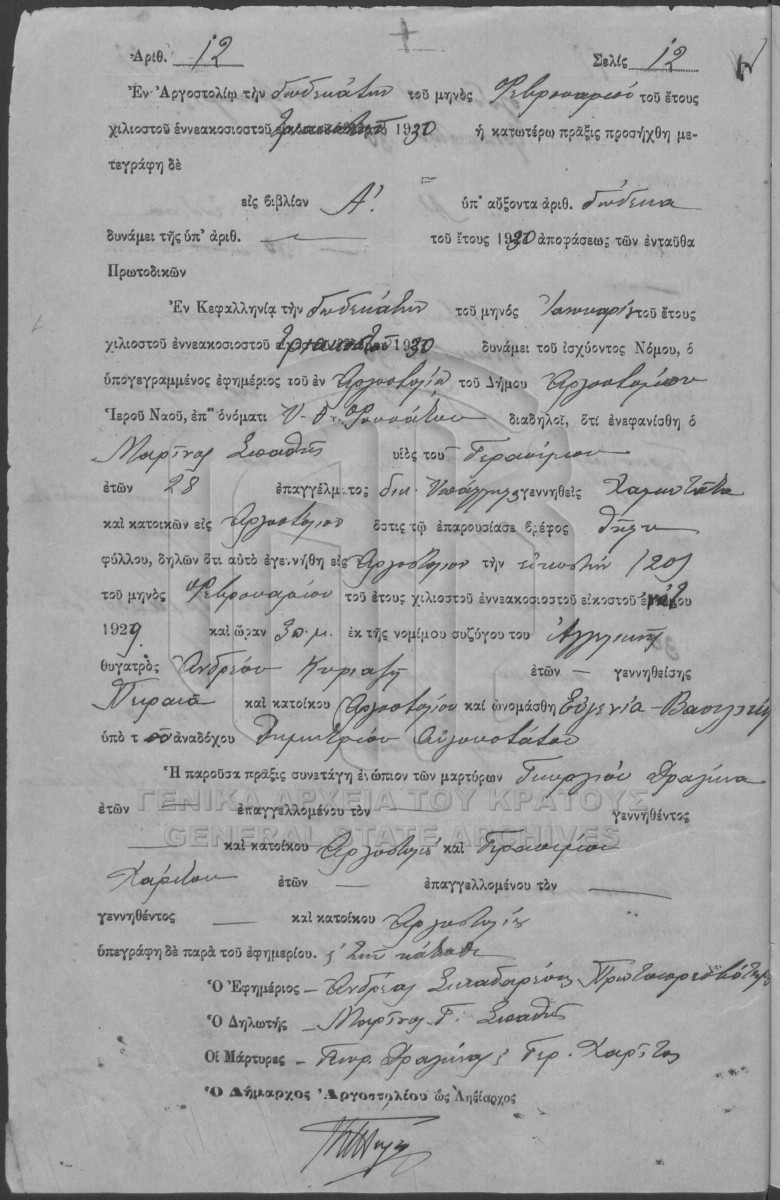 Ἀριθ. 12 Σελὶς 12
Ἐν Ἀργοστολίῳ τὴν δωδεκάτην τοῦ μηνὸς Φεβρουαρίου τοῦ ἔτους
χιλιοστοῦ ἐννεακοσιοστοῦ τριακοστοῦ 1930 ἡ κατωτέρω πρᾶξις προσήχθη με-
τεγράφη δὲ
εἰς βιβλίον Α΄. ὑπ' αὔξοντα ἀριθ. δώδεκα
δυνάμει τῆς ὑπ' ἀριθ. — τοῦ ἔτους 1930 ἀποφάσεως τῶν ἐνταῦθα
Πρωτοδικῶν
Ἐν Κεφαλληνίᾳ τὴν δωδεκάτην τοῦ μηνὸς Ἰανουαρίου τοῦ ἔτους
χιλιοστοῦ ἐννεακοσιοστοῦ τριακοστοῦ 1930 δυνάμει τοῦ ἰσχύοντος Νόμου, ὁ
ὑπογεγραμμένος ἐφημέριος τοῦ ἐν Ἀργοστολίῳ τοῦ Δήμου Ἀργοστολίου
Ἱεροῦ Ναοῦ, ἐπ' ὀνόματι διαδηλοῖ, ὅτι ἐνεφανίσθη ὁ
Μαρῖνος Σπαθῆς υἱὸς του Γερασίμου
ἐτῶν 28 ἐπαγγέλματος δικ. Ὑπάλληλος γεννηθεὶς
καὶ κατοικῶν εἰς Ἀργοστόλιον ὅστις τῷ ἐπαρουσίασε βρέφος θῆλυ
φύλλου, δηλῶν ὅτι αὐτὸ ἐγεννήθη εἰς Ἀργοστόλιον τὴν εἰκοστήν (20)
τοῦ μηνὸς Φεβρουαρίου τοῦ ἔτους χιλιοστοῦ ἐννεακοσιοστοῦ εἰκοστοῦ ἐνάτου
1929. καὶ ὥραν 3 π.μ. ἐκ τῆς νομίμου συζύγου του Ἀγγελικῆς
θυγατρὸς Ἀνδρέου Κυριαζῆ ἐτῶν — γεννηθείσης
Πειραιᾶ καὶ κατοίκου Ἀργοστολίου καὶ ὠνομάσθη Εὐγενία-Βασιλική
ὑπὸ τοῦ ἀναδόχου Δημητρίου Αὐγουστάτου
Ἡ παροῦσα πρᾶξις συνετάγη ἐνώπιον τῶν μαρτύρων Γεωργίου Δραγώνα
ἐτῶν — ἐπαγγελλομένου τὸν — γεννηθέντος
ΓΕΝΙΚΑ ΑΡΧΕΙΑ ΤΟΥ ΚΡΑΤΟΥΣ
GENERAL STATE ARCHIVES
— καὶ κατοίκου Ἀργοστολίου καὶ Γερασίμου
Χαρίτου ἐτῶν — ἐπαγγελλομένου τὸν —
γεννηθέντος — καὶ κατοίκου Ἀργοστολίου
ὑπεγράφη δὲ παρὰ τοῦ ἐφημερίου.
Ὁ Ἐφημέριος – Ἀνδρέας Πρωτοπρεσβύτερος
Ὁ Δηλωτής – Μαρῖνος Γ. Σπαθῆς
Οἱ Μάρτυρες – Γεωρ. Δραγώνας, Γερ. Χαρίτος
Ὁ Δήμαρχος Ἀργοστολίου ὡς Ληξίαρχος